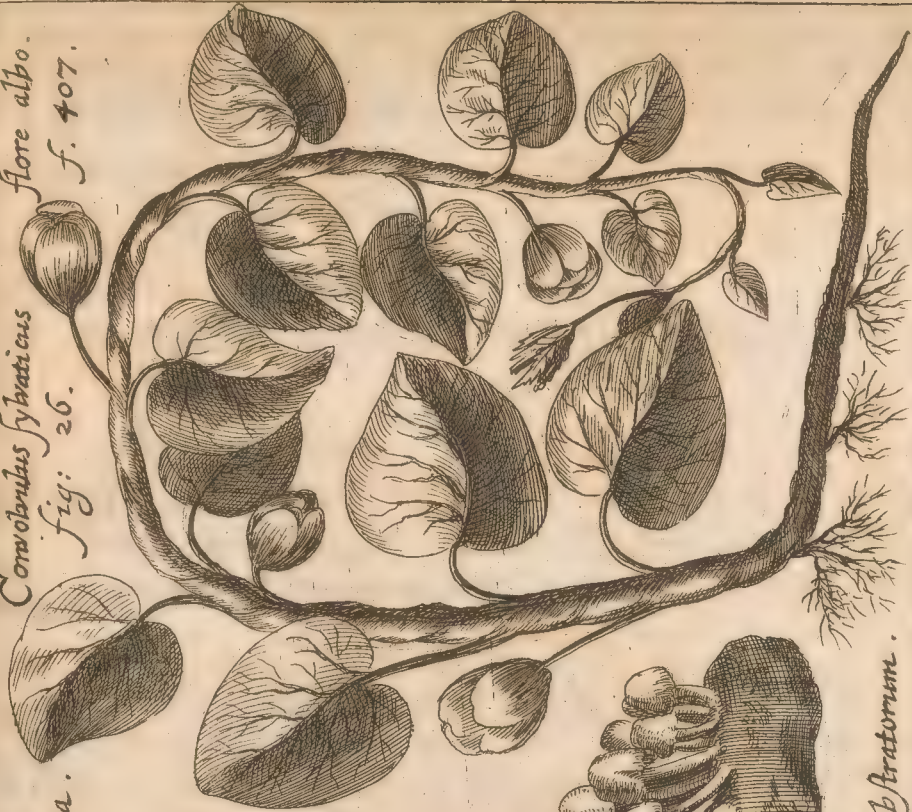 Convolvulus sylvaticus flore albo.
fig: 26. f. 407.
a.